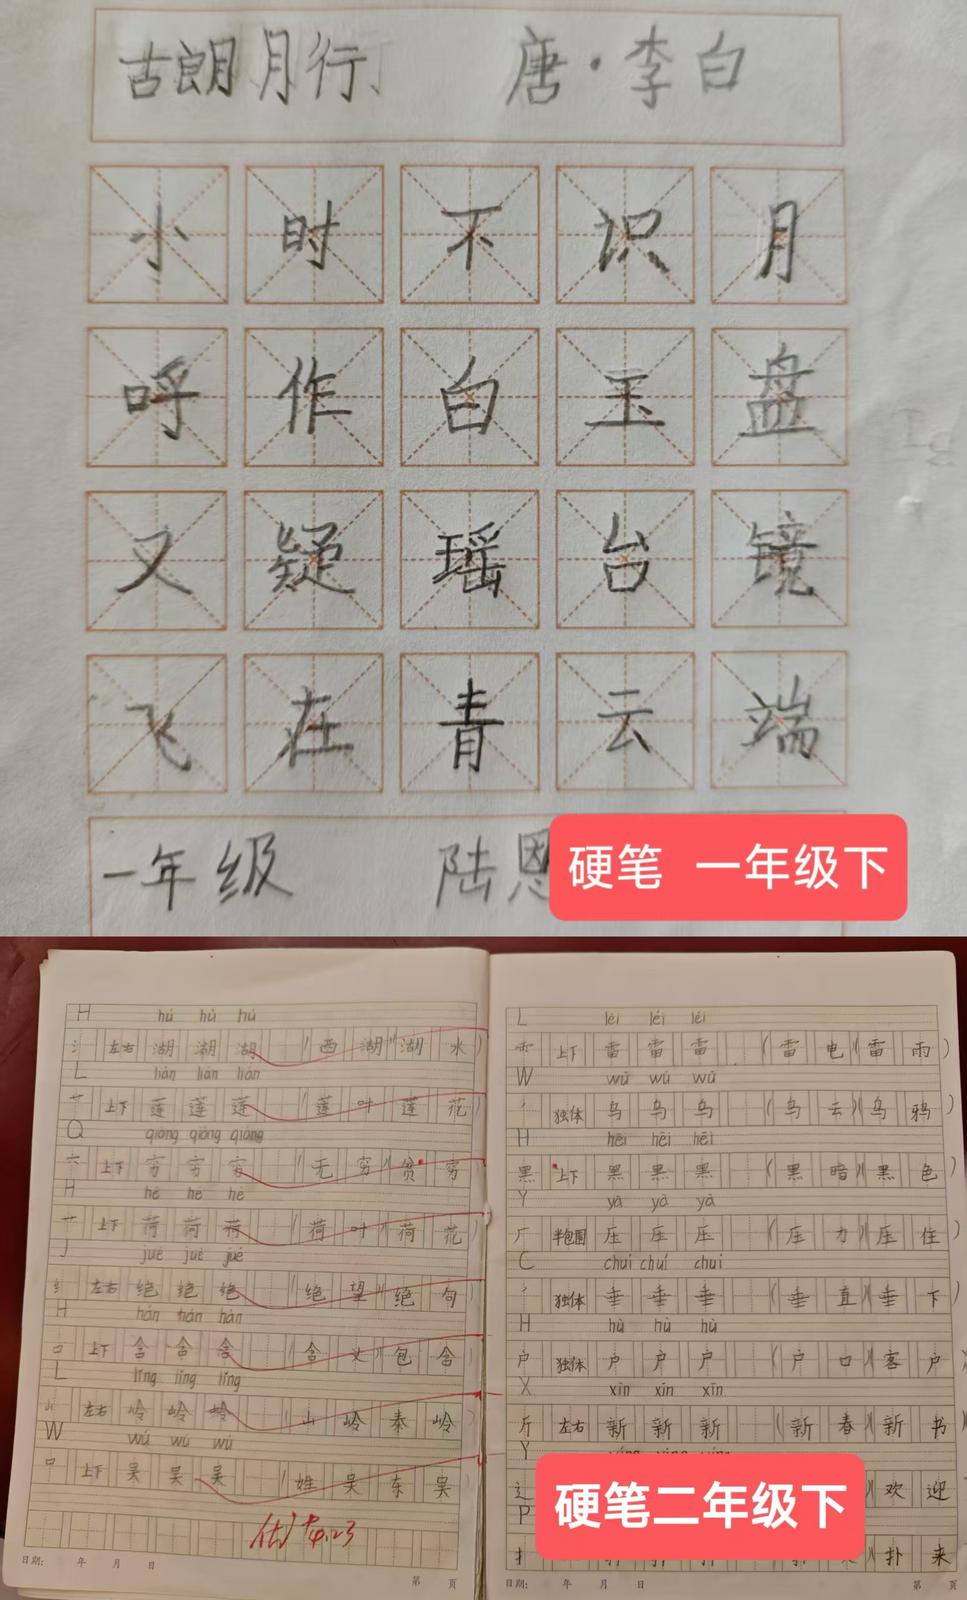 古朗月行 唐·李白
小时不识月
呼作白玉盘
又疑瑶台镜
飞在青云端
一年级 陆恩
硬笔 一年级下
H hú hú hú
氵 左右 湖 湖 湖 (西湖)(湖水)
L lián lián lián
艹 上下 莲 莲 莲 (莲叶)(莲花)
Q qióng qióng qióng
穴 上下 穷 穷 穷 (无穷)(贫穷)
H hé hé hé
艹 上下 荷 荷 荷 (荷叶)(荷花)
J jué jué jué
纟 左右 绝 绝 绝 (绝望)(绝句)
H hán hán hán
口 上下 含 含 含 (含义)(包含)
L lǐng lǐng lǐng
山 左右 岭 岭 岭 (山岭)(秦岭)
W wú wú wú
口 上下 吴 吴 吴 (姓吴)(东吴)
优+ 4.23
日期: 年 月 日
第 页
L léi léi léi
雨 上下 雷 雷 雷 (雷电)(雷雨)
W wū wū wū
丿 独体 乌 乌 乌 (乌云)(乌鸦)
H hēi hēi hēi
黑 上下 黑 黑 黑 (黑暗)(黑色)
Y yā yā yā
厂 半包围 压 压 压 (压力)(压住)
C chuí chuí chuí
丿 独体 垂 垂 垂 (垂直)(垂下)
H hù hù hù
户 独体 户 户 户 (户口)(客户)
X xīn xīn xīn
斤 左右 新 新 新 (新春)(新书)
Y
辶 (欢迎)
P
扌 (扑来)
硬笔二年级下
日期: 年 月 日
第 页